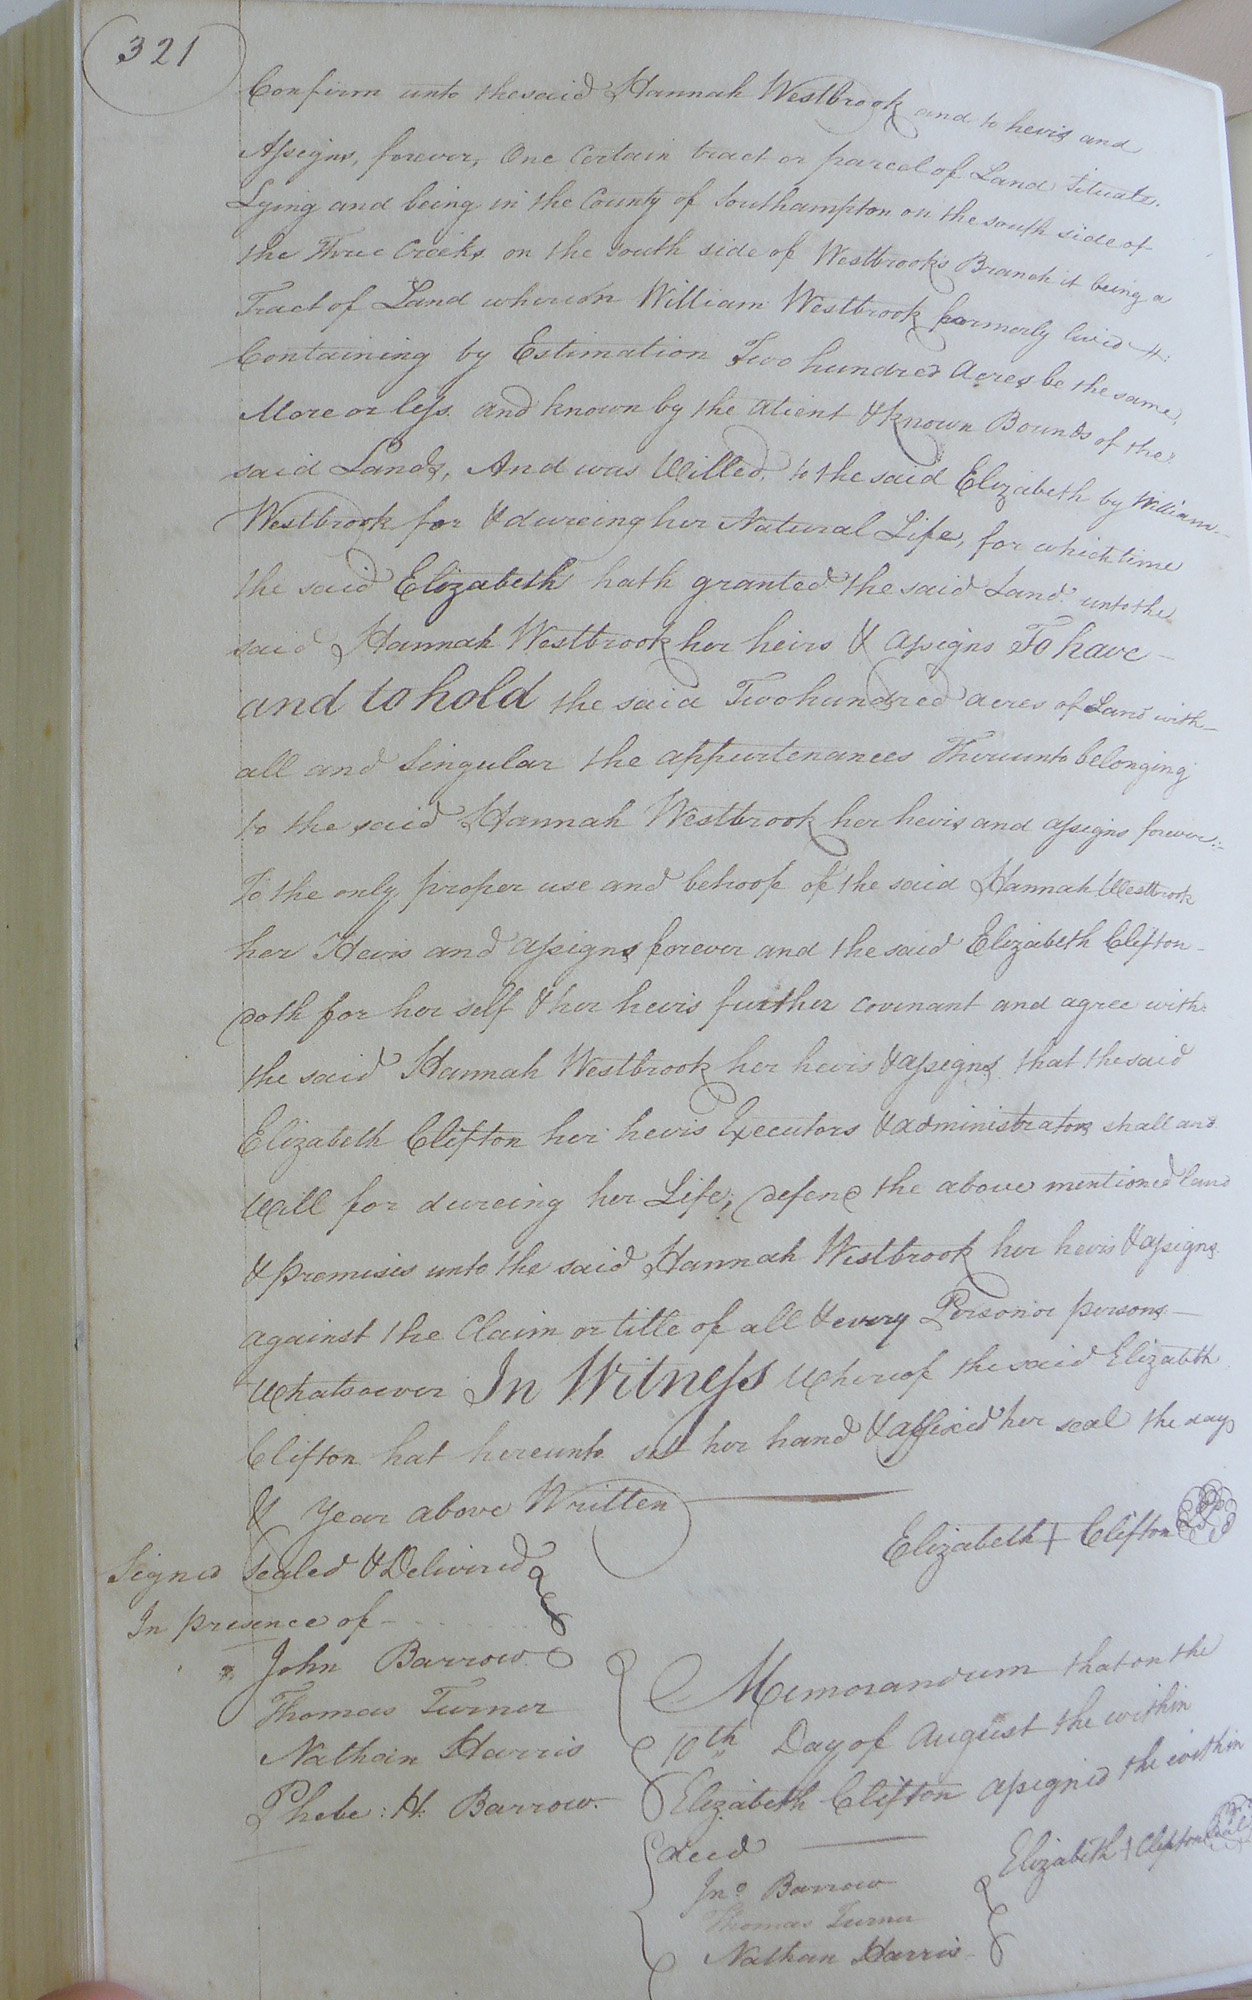 321
Confirm unto the said Hannah Westbrook and to hevis and
Assigns, forever, One Certain tract or parcel of Land Situate.
Lying and being in the County of Southampton on the south side of
the Three Creeks on the South side of Westbrooks Branch it being a
Tract of Land whereon William Westbrook formerly lived &:
Containing by Estimation Two hundred Acres be the same,
More or less. and known by the atient & known Bounds of the
said Lands, And was Willed, to the said Elizabeth by William
Westbrook for & dureing her Natural Life, for which time
the said Elizabeth hath granted the said Land unto the
said Hannah Westbrook her heirs & assigns To have
and to hold the said Two hundred acres of Land with
all and Singular the appurtenances Thereunto belonging
to the said Hannah Westbrook her hevis and assigns forever:
To the only proper use and behoofe of the said Hannah Westbrook
her Hevis and assigns forever and the said Elizabeth Clifton
doth for her self & her hevis further covinant and agree with
the said Hannah Westbrook her hevis & assigns that the said
Elizabeth Clifton her hevis Executors & administrators shall and
Will for dureing her Life, defend the above mentioned land
& premises unto the said Hannah Westbrook her hevis & assigns
against the Claim or title of all & every Person or persons
Whatsoever In Witness Whereof the said Elizabeth
Clifton hat hereunto set her hand & affixed her seal the day
& Year above Written
Elizabeth + Clifton
Signed Sealed & Delivered
In presence of
John Barrow
Thomas Turner
Nathan Harris
Phebe: H: Barrow
Memorandum that on the
10th Day of August the within
Elizabeth Clifton assigned the within
deed
Elizabeth + Clifton Seal
Jno Barrow
Thomas Turner
Nathan Harris